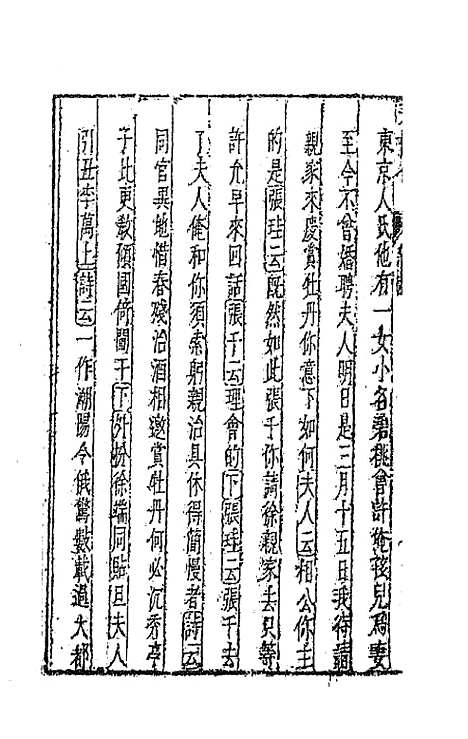 東京人氏他有一女小名碧桃曾許俺孩兒爲妻
至今不曾婚聘夫人明日是三月十五日我待請
親家來慶賞牡丹你意下如何夫人云相公你主
的是張珪云旣然如此張千你請徐親家去只等
許允早來囘話張千云理會的下張珪云張千去
了夫人俺和你須索躬親治具休得𥳑慢者詩云
同官異地惜春殘治酒相邀賞牡丹何必沉香亭
子此更敎傾國倚闌干下外扮徐端同貼旦夫人
引丑李萬上詩云一作潮陽令俄驚數載過大都